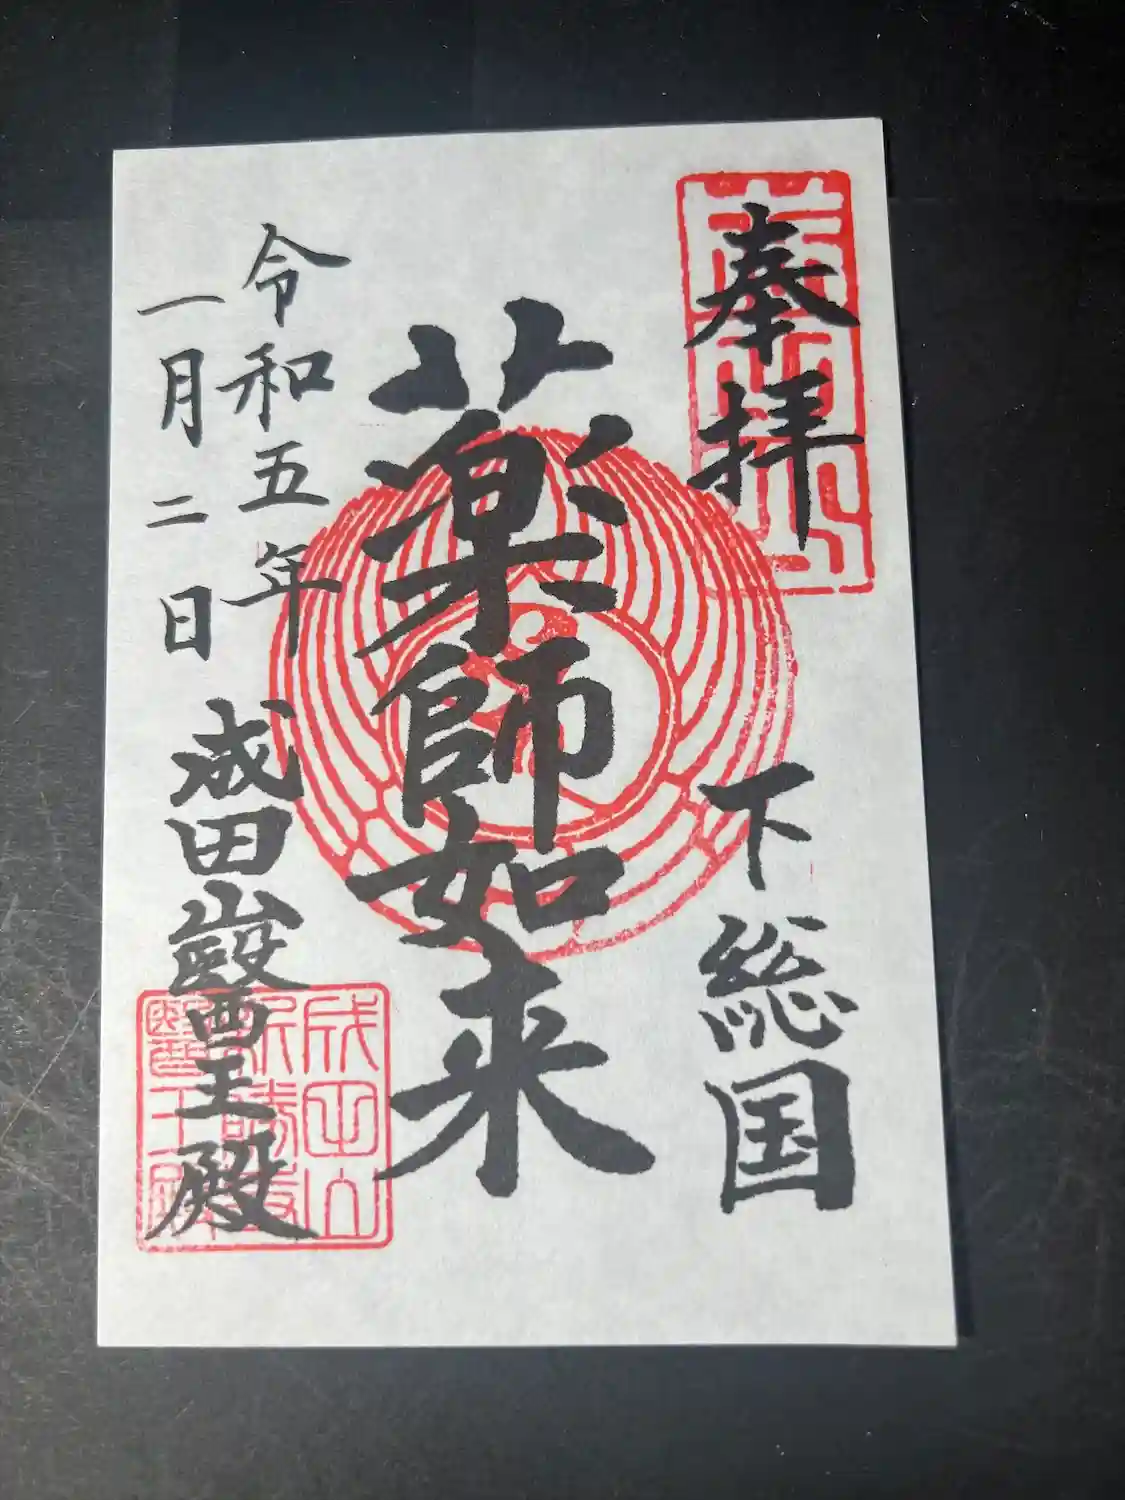 奉拝
下総国
薬師如来
令和五年
一月二日
成田山醫王殿
成田山
新勝寺
醫王殿